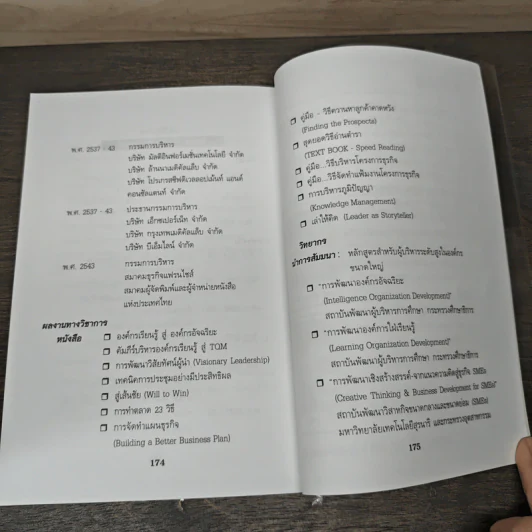 พ.ศ. 2537 - 43 กรรมการบริหาร
บริษัท มัลติอินฟอร์เมชั่นเทคโนโลยี จำกัด
บริษัท ล้านนาเมดิคัลแล็บ จำกัด
บริษัท โปรเกรสซิฟดีเวลลอปเม้นท์ แอนด์
คอนซัลแตนท์ จำกัด
พ.ศ. 2537 - 43 ประธานกรรมการบริหาร
บริษัท เอ็กซเปอร์เน็ท จำกัด
บริษัท กรุงเทพเมดิคัลแล็บ จำกัด
บริษัท บีเอ็มไลน์ จำกัด
พ.ศ. 2543 กรรมการบริหาร
สมาคมธุรกิจแฟรนไชส์
สมาคมผู้จัดพิมพ์และผู้จำหน่ายหนังสือ
แห่งประเทศไทย
ผลงานทางวิชาการ
หนังสือ ❒ องค์กรเรียนรู้ สู่ องค์กรอัจฉริยะ
❒ คัมภีร์บริหารองค์กรเรียนรู้ สู่ TQM
❒ การพัฒนาวิสัยทัศน์ผู้นำ (Visionary Leadership)
❒ เทคนิคการประชุมอย่างมีประสิทธิผล
❒ สู่เส้นชัย (Will to Win)
❒ การทำตลาด 23 วิธี
❒ การจัดทำแผนธุรกิจ
(Building a Better Business Plan)
174
❒ คู่มือ - วิธีควานหาลูกค้าคาดหวัง
(Finding the Prospects)
❒ สุดยอดวิธีอ่านตำรา
(TEXT BOOK - Speed Reading)
❒ คู่มือ...วิธีบริหารโครงการธุรกิจ
❒ คู่มือ...วิธีจัดทำแฟ้มงานโครงการธุรกิจ
❒ การบริหารภูมิปัญญา
(Knowledge Management)
❒ เล่าให้คิด (Leader as Storyteller)
วิทยากร
นำการสัมมนา : หลักสูตรสำหรับผู้บริหารระดับสูงในองค์กร
ขนาดใหญ่
❒ "การพัฒนาองค์กรอัจฉริยะ
(Intelligence Organization Development)"
สถาบันพัฒนาผู้บริหารการศึกษา กระทรวงศึกษาธิการ
❒ "การพัฒนาองค์การใฝ่เรียนรู้
(Learning Organization Development)"
สถาบันพัฒนาผู้บริหารการศึกษา กระทรวงศึกษาธิการ
❒ "การพัฒนาเชิงสร้างสรรค์-จากแนวความคิดสู่ธุรกิจ SMEs
(Creative Thinking & Business Development for SMEs)"
สถาบันพัฒนาวิสาหกิจขนาดกลางและขนาดย่อม (SMEs)
มหาวิทยาลัยเทคโนโลยีสุรนารี และกระทรวงอุตสาหกรรม
175